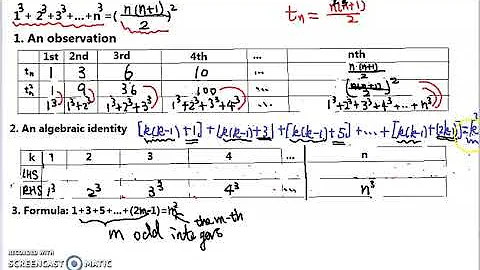 1³ + 2³ + 3³ + ... + n³ = (n(n+1)/2)²
tₙ = n(n+1)/2
1. An observation
1st 2nd 3rd 4th ... nth
tₙ 1 3 6 10 n·(n+1)/2
tₙ² 1 9 36 100 (n(n+1)/2)²
1³ 1³+2³ 1³+2³+3³ 1³+2³+3³+4³ 1³+2³+3³+4³+...+n³
2. An algebraic identity [k(k-1)+1]+[k(k-1)+3]+[k(k-1)+5]+...+[k(k-1)+(2k-1)]=k³
k 1 2 3 4 ... n
LHS
RHS 1³ 2³ 3³ 4³ n³
3. Formula: 1+3+5+...+(2m-1)=m²
the m-th
m odd integers
RECORDED WITH
SCREENCAST MATIC